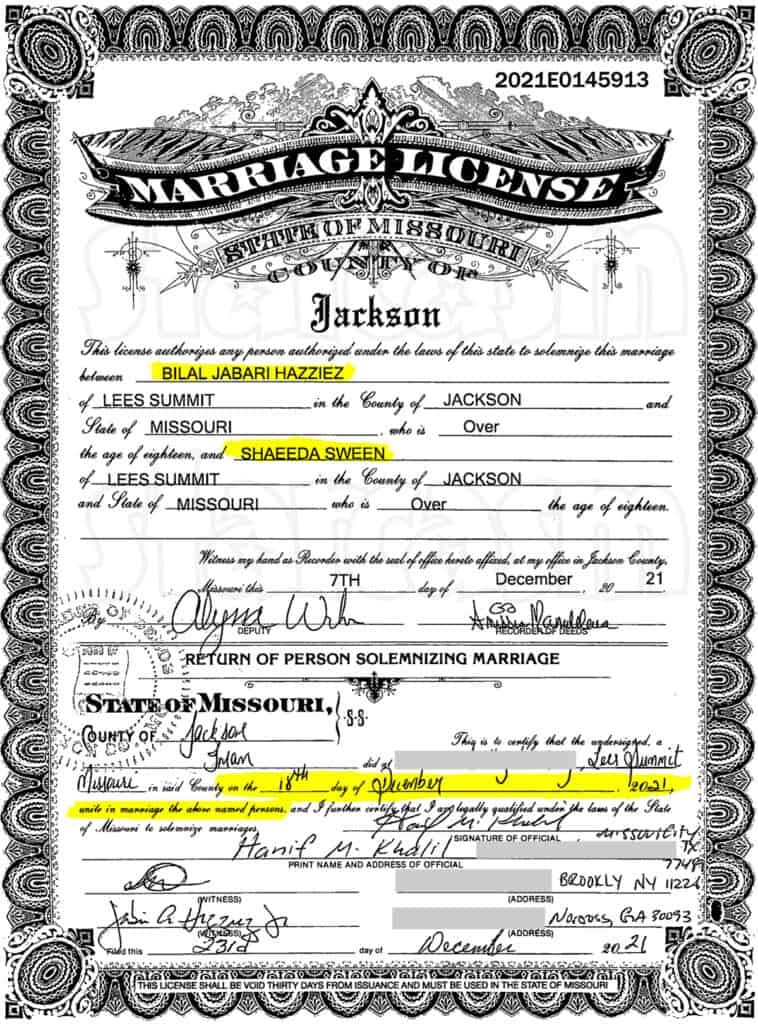 2021E0145913
MARRIAGE LICENSE
STATE OF MISSOURI
COUNTY OF
Jackson
This license authorizes any person authorized under the laws of this state to solemnize this marriage
between BILAL JABARI HAZZIEZ
of LEES SUMMIT in the County of JACKSON and
State of MISSOURI , who is Over
the age of eighteen, and SHAEEDA SWEEN
of LEES SUMMIT in the County of JACKSON
and State of MISSOURI who is Over the age of eighteen.
Witness my hand as Recorder with the seal of office hereto affixed, at my office in Jackson County,
Missouri this 7TH day of December , 20 21
By
DEPUTY RECORDER OF DEEDS
RETURN OF PERSON SOLEMNIZING MARRIAGE
STATE OF MISSOURI, } S.S.
COUNTY OF Jackson
This is to certify that the undersigned, a
Iman did at Lees Summit
Missouri in said County on the 18th day of December , 2021,
unite in marriage the above named persons, and I further certify that I am legally qualified under the laws of the State
of Missouri to solemnize marriages.
SIGNATURE OF OFFICIAL MISSOURI CITY
Hanif M. Khalil TX
PRINT NAME AND ADDRESS OF OFFICIAL 77489
BROOKLY NY 11226
(WITNESS) (ADDRESS)
Norcross, GA 30093
(WITNESS) (ADDRESS)
Filed this 23rd day of December 20 21
THIS LICENSE SHALL BE VOID THIRTY DAYS FROM ISSUANCE AND MUST BE USED IN THE STATE OF MISSOURI